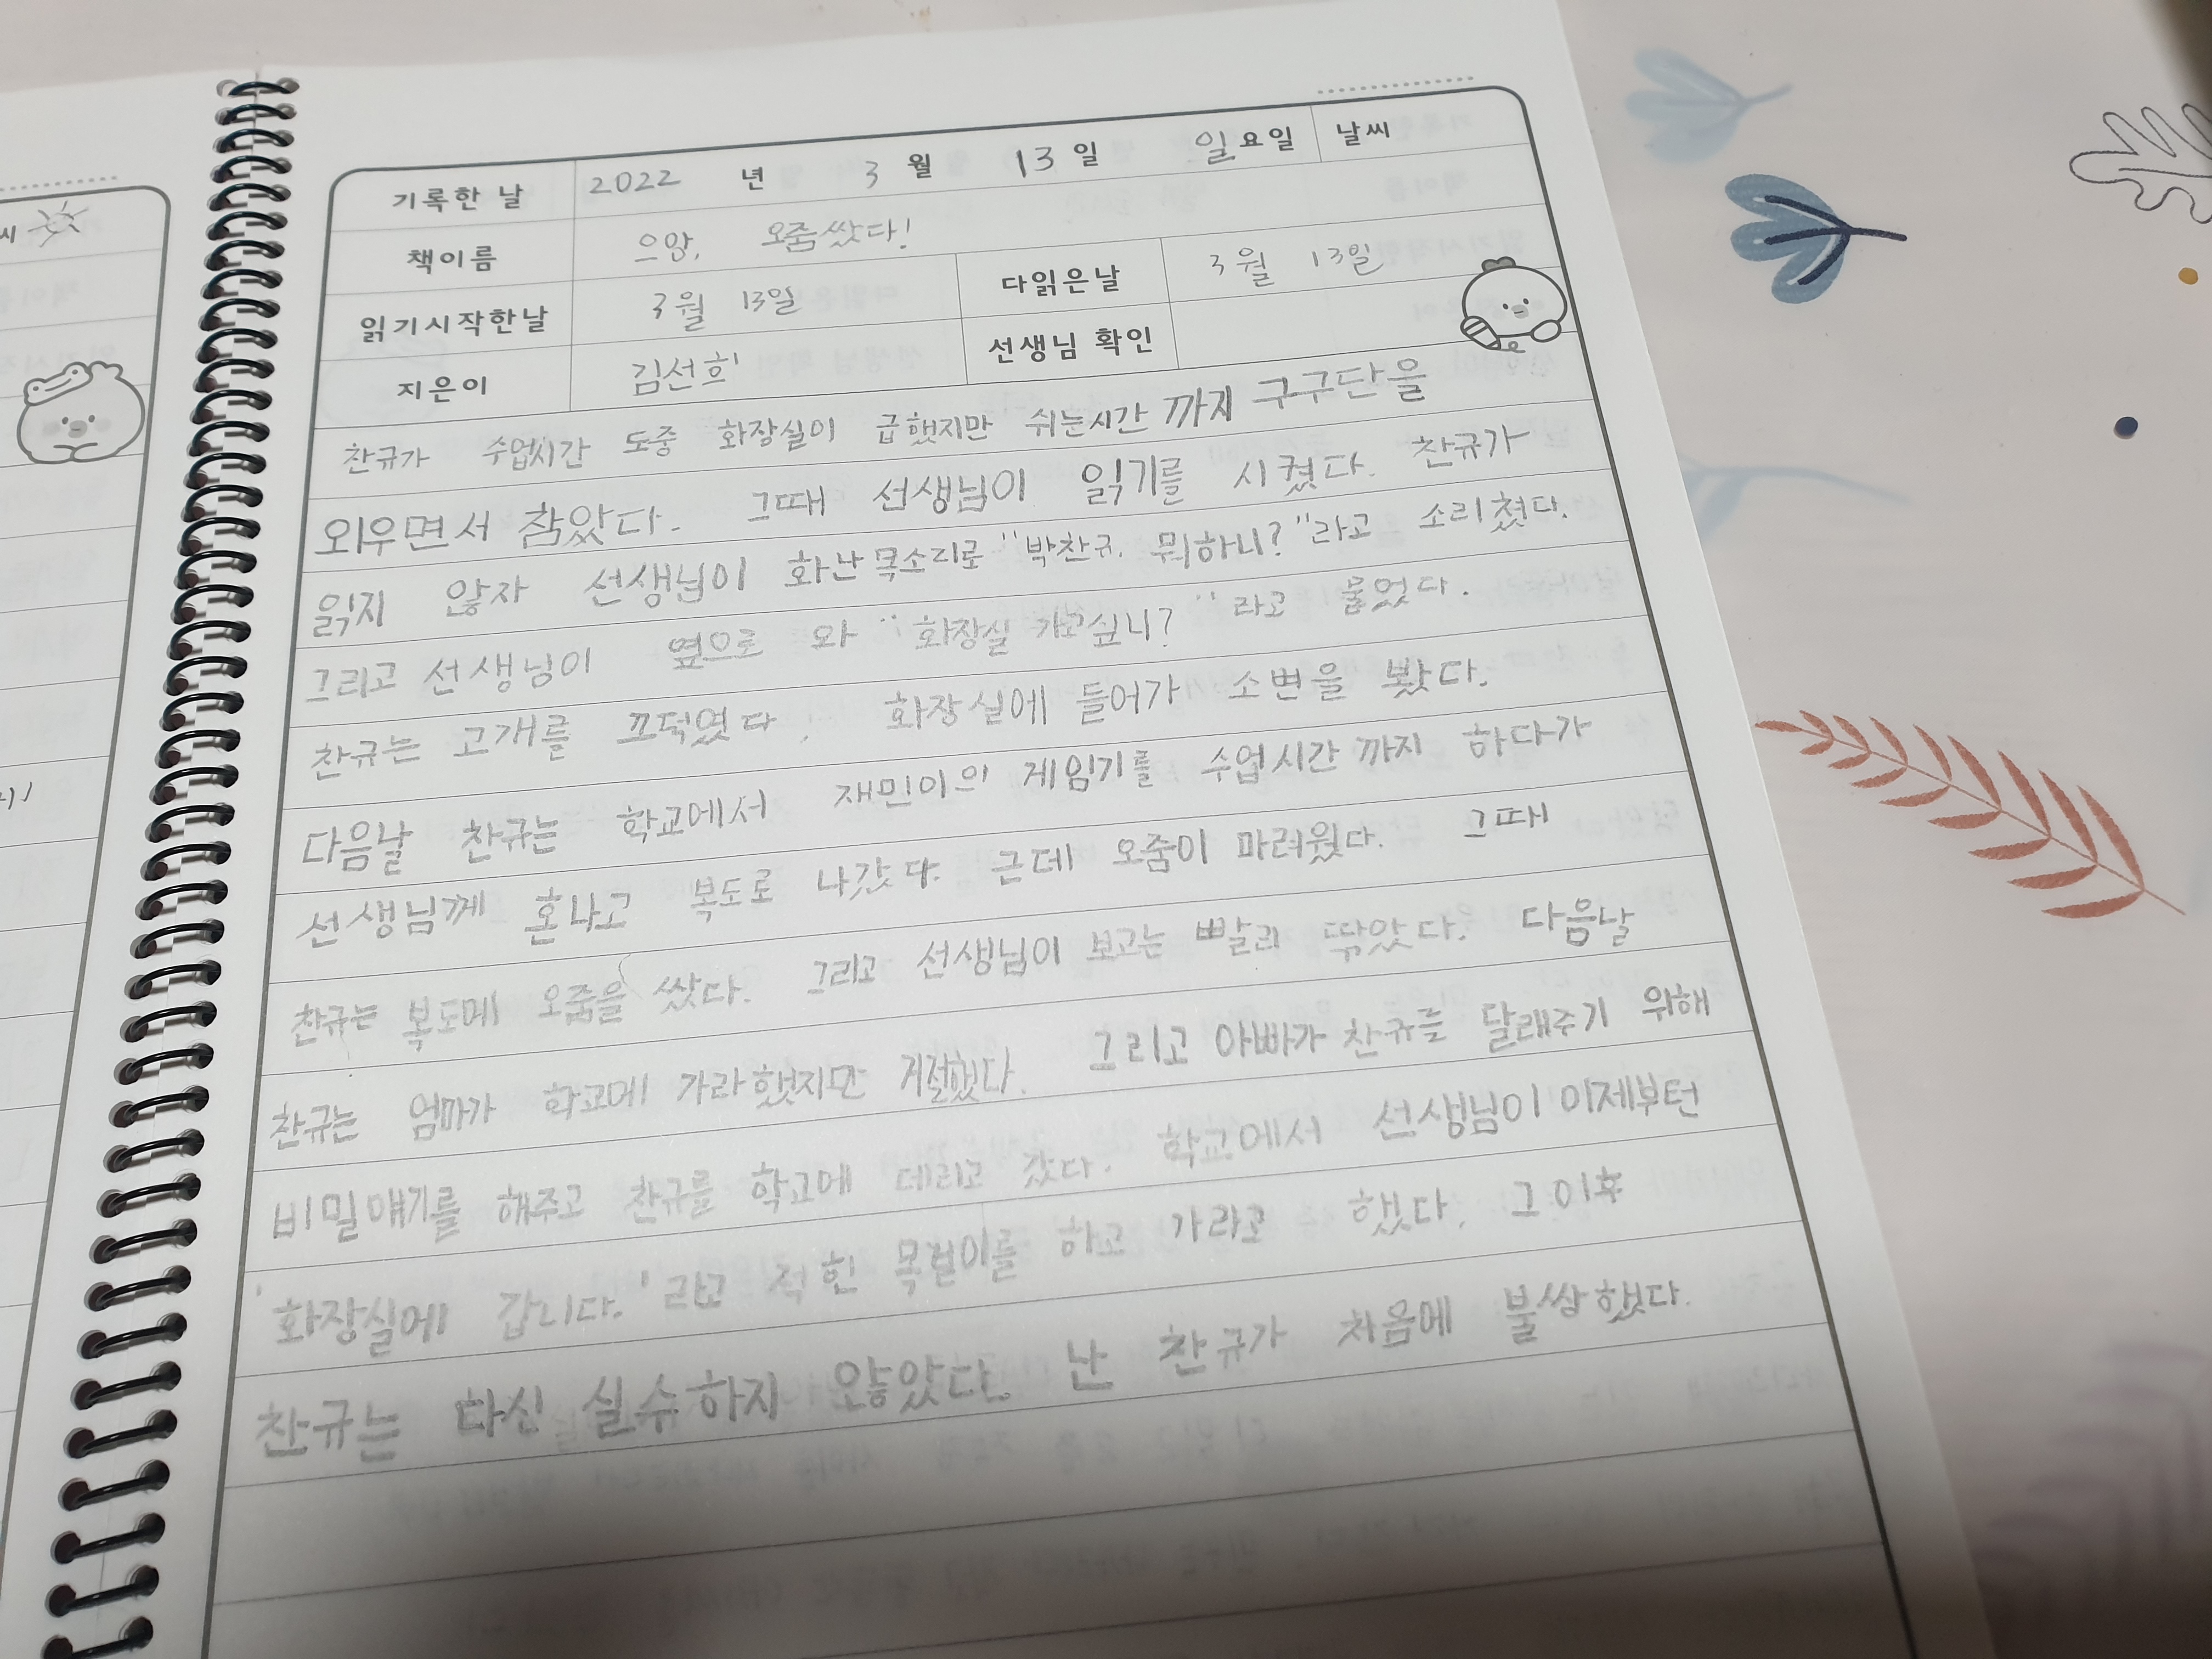 기록한 날 2022 년 3 월 13 일 일 요일 날씨
책이름 으앙, 오줌 쌌다!
읽기시작한날 3월 13일 다읽은날 3월 13일
지은이 김선희 선생님 확인
찬규가 수업시간 도중 화장실이 급했지만 쉬는시간 까지 구구단을
외우면서 참았다. 그때 선생님이 읽기를 시켰다. 찬규가
읽지 않자 선생님이 화난 목소리로 "박찬규, 뭐하니?"라고 소리쳤다.
그리고 선생님이 옆으로 와 "화장실 가고싶니?" 라고 물었다.
찬규는 고개를 끄덕였다. 화장실에 들어가 소변을 봤다.
다음날 찬규는 학교에서 재민이의 게임기를 수업시간 까지 하다가
선생님께 혼나고 복도로 나갔다. 근데 오줌이 마려웠다. 그때
찬규는 복도에 오줌을 쌌다. 그리고 선생님이 보고는 빨리 닦았다. 다음날
찬규는 엄마가 학교에 가라했지만 거절했다. 그리고 아빠가 찬규를 달래주기 위해
비밀얘기를 해주고 찬규를 학교에 데리고 갔다. 학교에서 선생님이 이제부턴
'화장실에 갑니다.' 라고 적힌 목걸이를 하고 가라고 했다. 그 이후
찬규는 다신 실수하지 않았다. 난 찬규가 처음에 불쌍했다.